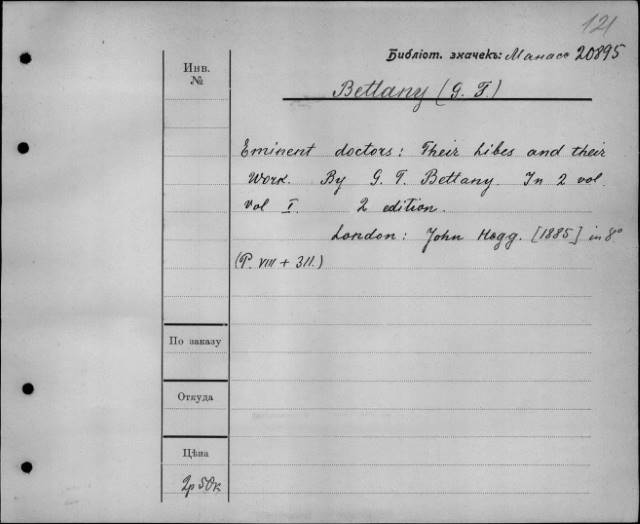 121
Библіот. значекъ: Манасс 20895
Инв.
№
Bettany (G. T.)
Eminent doctors: Their Libes and their
Work. By G. T. Bettany. In 2 vol.
Vol I. 2 edition.
London: John Hogg. [1885] in 8°
(P. VIII + 311.)
По заказу
Откуда
Цѣна
2р 50к